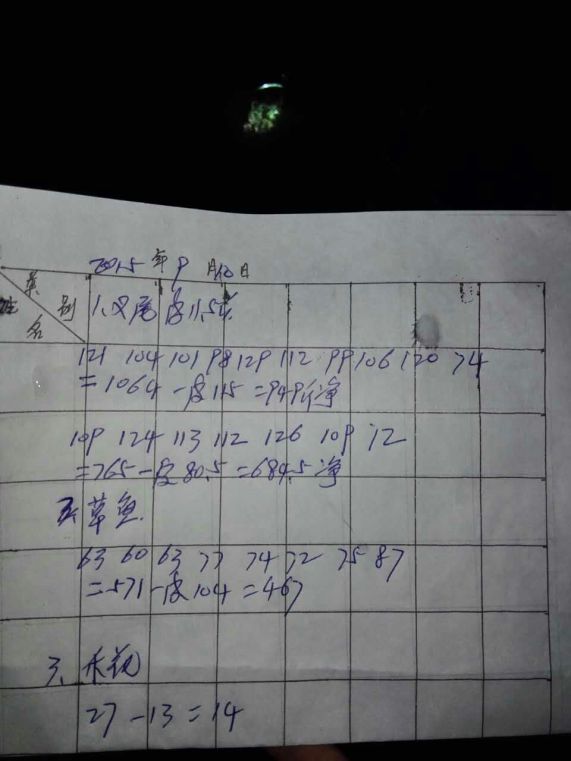 2015年9月10日
类别
姓名
1.叉尾 皮11.5斤
121 104 101 98 129 112 99 106 120 74
=1064-皮115=949斤净
109 124 113 112 126 109 72
=765-皮80.5=684.5净
2.草鱼
63 60 63 77 74 72 75 87
=571-皮104=467
3、
27-13=14